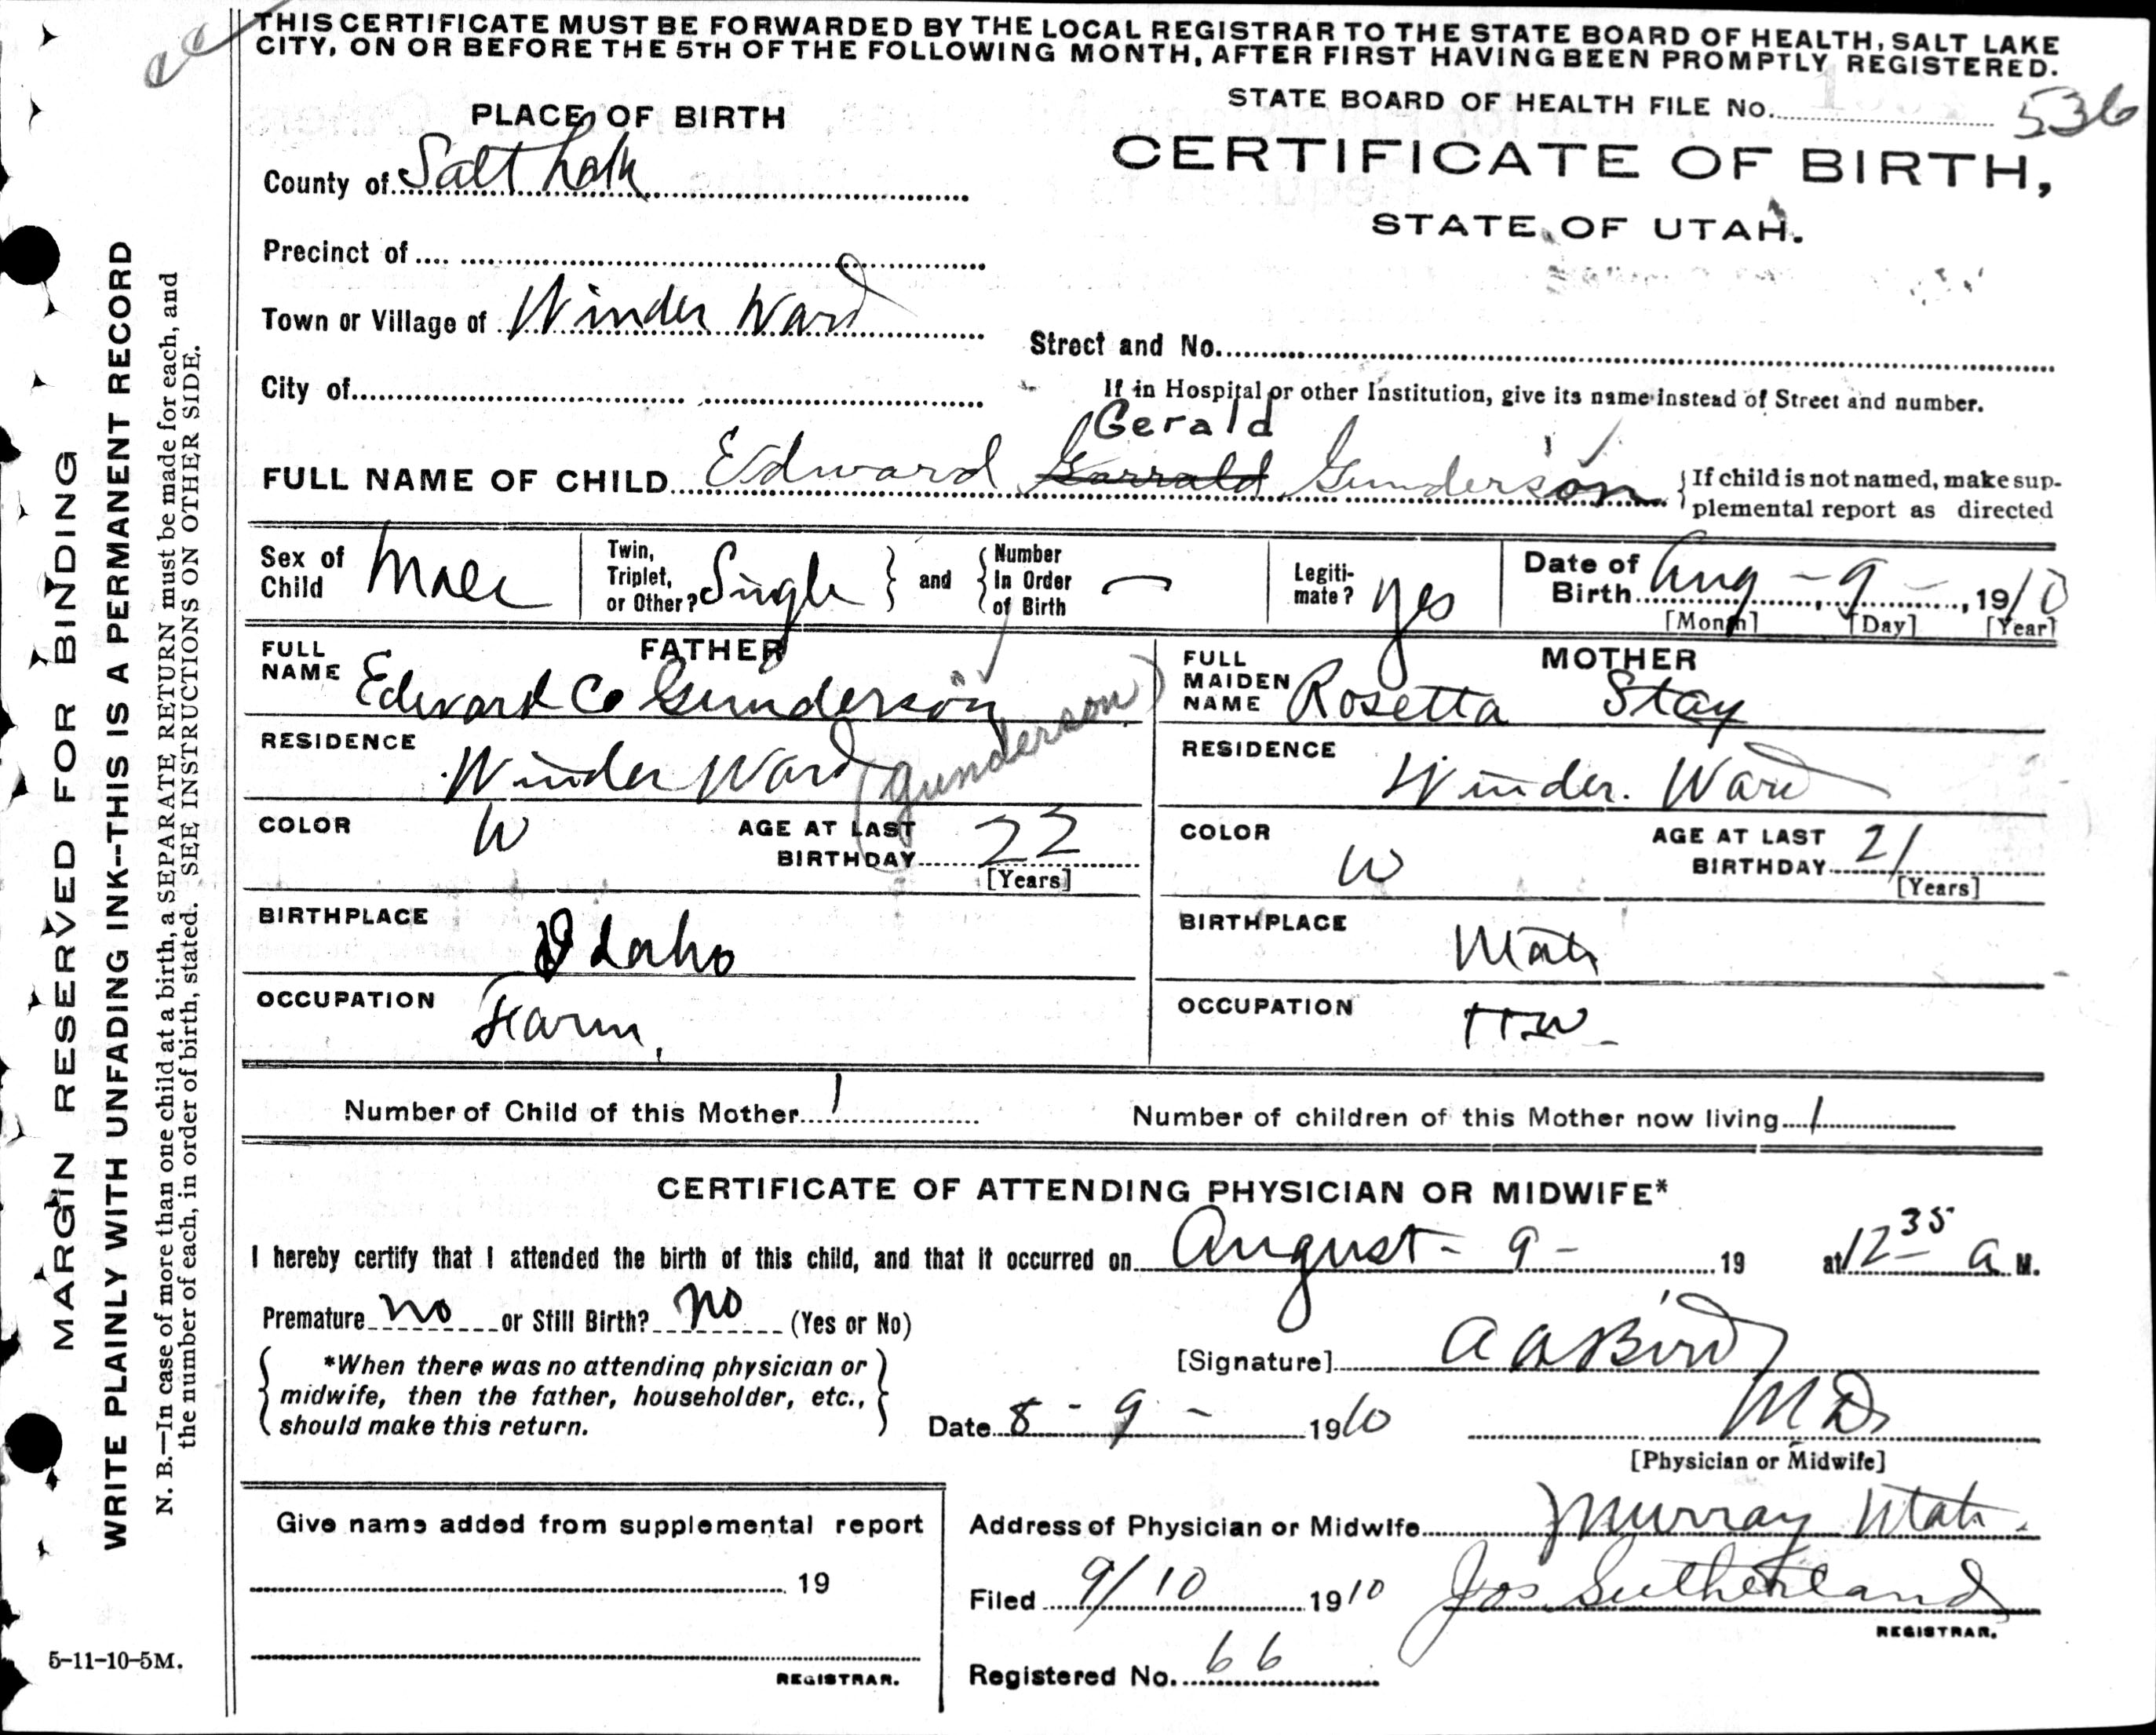 THIS CERTIFICATE MUST BE FORWARDED BY THE LOCAL REGISTRAR TO THE STATE BOARD OF HEALTH, SALT LAKE
CITY, ON OR BEFORE THE 5TH OF THE FOLLOWING MONTH, AFTER FIRST HAVING BEEN PROMPTLY REGISTERED.
STATE BOARD OF HEALTH FILE No. 536
PLACE OF BIRTH
CERTIFICATE OF BIRTH,
STATE OF UTAH.
County of Salt Lake
Precinct of
Town or Village of Winder Ward
Street and No.
City of
If in Hospital or other Institution, give its name instead of Street and number.
Gerald
FULL NAME OF CHILD Edward Garrald Gunderson
{If child is not named, make sup-
plemental report as directed
Sex of Child Male
Twin, Triplet, or Other? Single } and { Number In Order of Birth —
Legiti-mate? yes
Date of Birth Aug - 9 - , 1910
[Month] [Day] [Year]
FATHER
FULL NAME Edward C Gunderson
(Gunderson)
RESIDENCE Winder Ward
COLOR W AGE AT LAST BIRTHDAY 22
[Years]
BIRTHPLACE Idaho
OCCUPATION Farm.
MOTHER
FULL MAIDEN NAME Rosetta Stay
RESIDENCE Winder. Ward
COLOR W AGE AT LAST BIRTHDAY 21
[Years]
BIRTHPLACE Utah
OCCUPATION HW
Number of Child of this Mother 1 Number of children of this Mother now living 1
CERTIFICATE OF ATTENDING PHYSICIAN OR MIDWIFE*
I hereby certify that I attended the birth of this child, and that it occurred on August - 9 - 19 at 12 35 a M.
Premature no or Still Birth? no (Yes or No)
*When there was no attending physician or
midwife, then the father, householder, etc.,
should make this return.
[Signature] A A Bird
Date 8 - 9 - 1910 MD
[Physician or Midwife]
Give name added from supplemental report
19
REGISTRAR.
Address of Physician or Midwife Murray Utah.
Filed 9/10 1910 Jos Sutherland
REGISTRAR.
Registered No. 66
MARGIN RESERVED FOR BINDING
WRITE PLAINLY WITH UNFADING INK--THIS IS A PERMANENT RECORD
N. B.—In case of more than one child at a birth, a SEPARATE RETURN must be made for each, and
the number of each, in order of birth, stated. SEE INSTRUCTIONS ON OTHER SIDE.
5-11-10-5M.